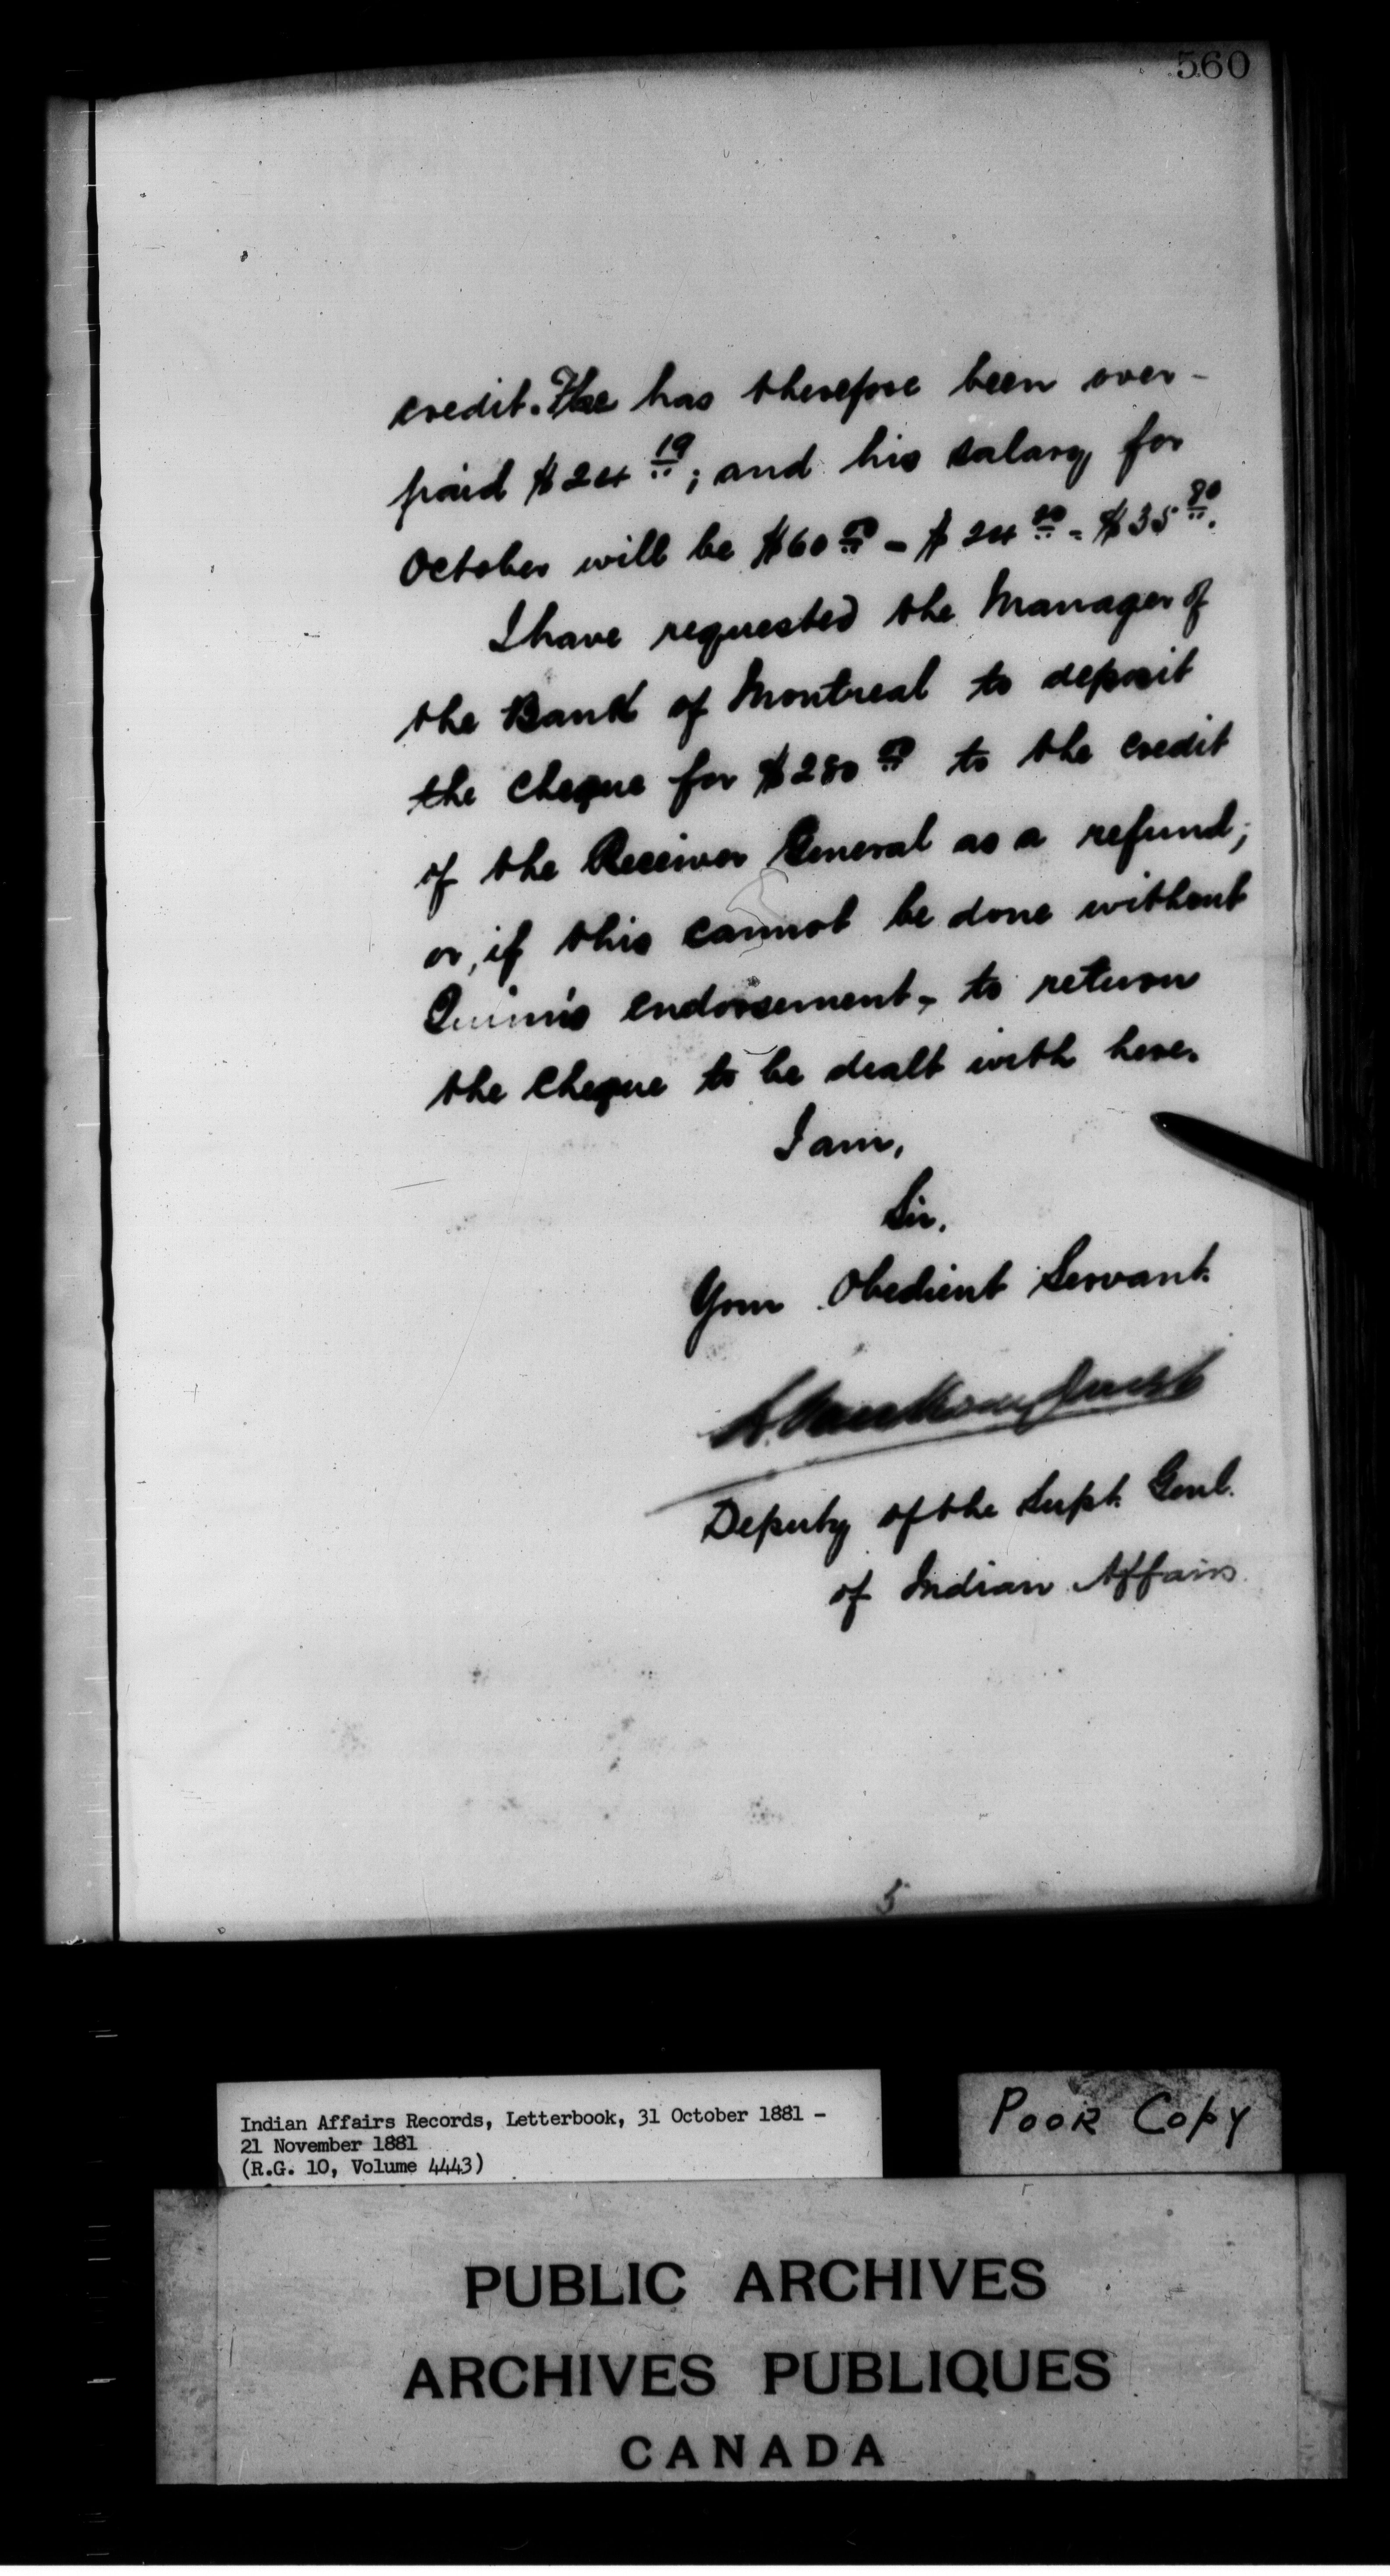 560
credit. He has therefore been over-
paid $24 19; and his salary for
October will be $60 00 - $24 20 = $35 80.
I have requested the Manager of
the Bank of Montreal to deposit
the Cheque for $280 00 to the credit
of the Receiver General as a refund;
or, if this cannot be done without
Quinn's endorsement, to return
the Cheque to be dealt with here.
I am,
Sir,
Your Obedient Servant.
L. Vankoughnet
Deputy of the Supt. Genl.
of Indian Affairs
5
Indian Affairs Records, Letterbook, 31 October 1881 -
21 November 1881
(R.G. 10, Volume 4443)
Poor Copy
PUBLIC ARCHIVES
ARCHIVES PUBLIQUES
CANADA